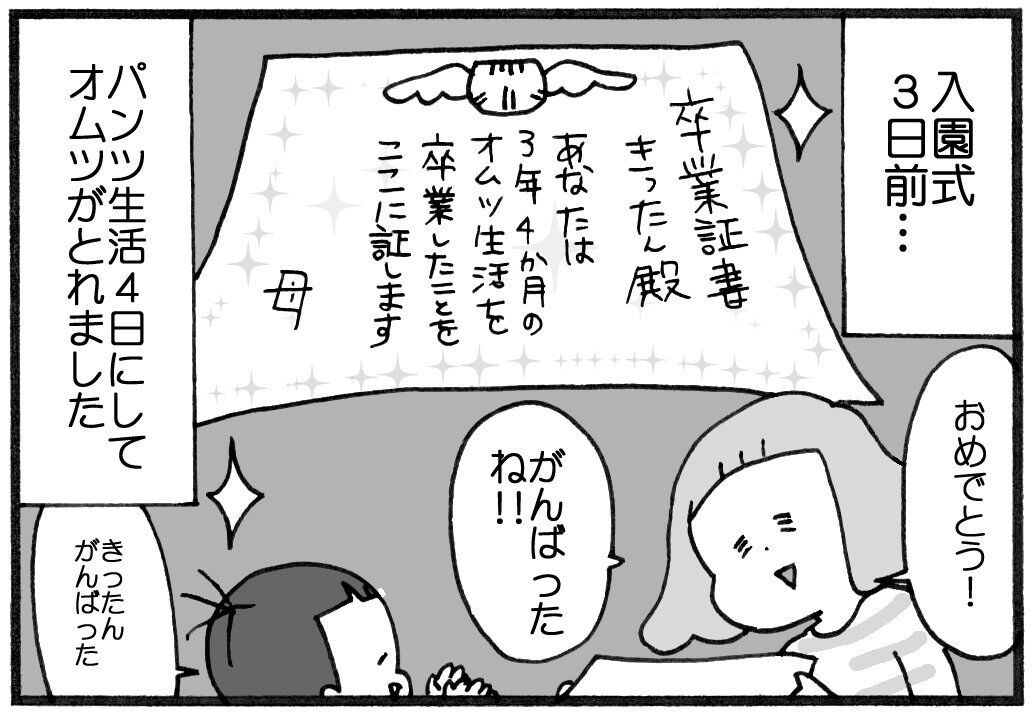 入園式
３日前…
卒業証書
きったん殿
あなたは
３年４か月の
オムツ生活を
卒業したことを
ここに証します
母
おめでとう！
がんばった
ね！！
パンツ生活４日にして
オムツがとれました
きったん
がんばった